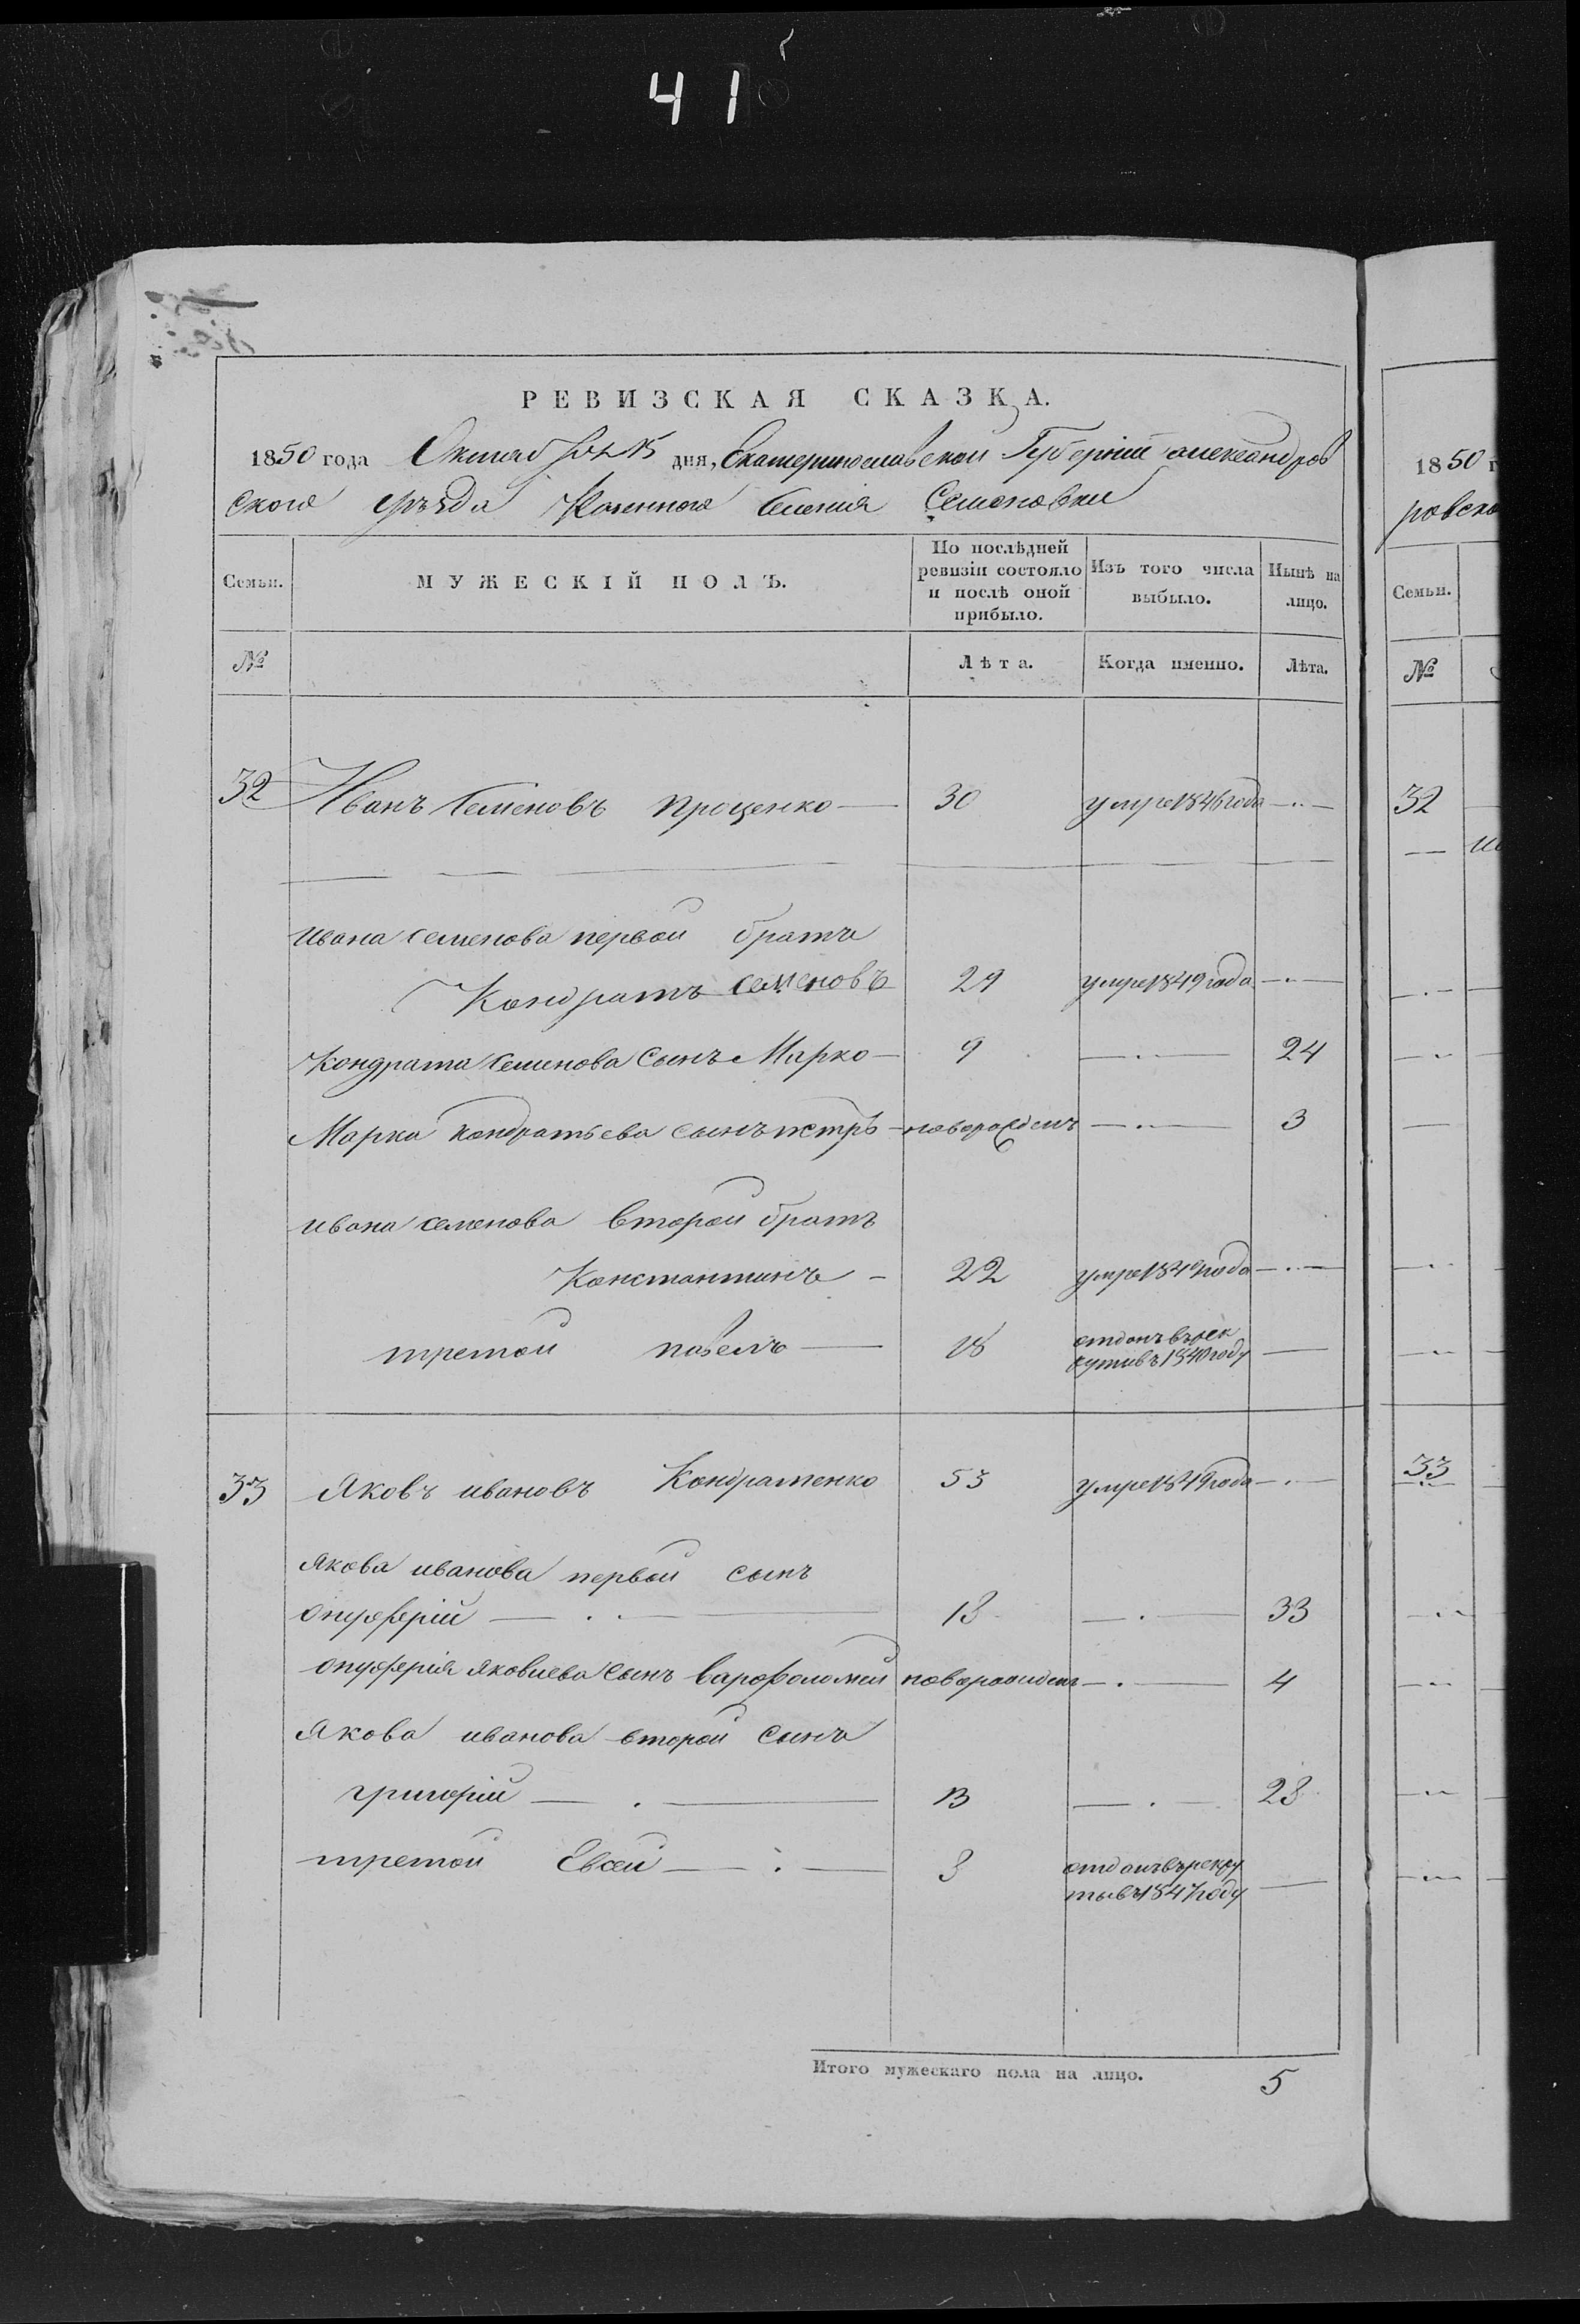 41
РЕВИЗСКАЯ СКАЗКА.
1850 года Октября 15 дня, Екатеринославской Губерніи александров
ского уѣзда Казенного Селения Семеновки
Семьи.
МУЖЕСКІЙ ПОЛЪ.
По послѣдней ревизіи состояло и послѣ оной прибыло.
Изъ того числа выбыло.
Нынѣ на лицо.
№
Лѣта.
Когда именно.
Лѣта.
32 Иванъ Семеновъ Проценко — 30 умре 1846 года
Ивана семенова первой братъ
Кондратъ семеновъ 29 умре 1849 года
Кондрата Семенова Сынъ Марко — 9 24
Марка кондратьева сынъ петръ — новорожденъ 3
Ивана семенова второй братъ
Константинъ — 22 умре 1849 года
третой павелъ — 18 отданъ въ рек
рути въ 1840 году
33 Яковъ ивановъ Кондратенко 53 умре 1849 года
Якова иванова первой сынъ
онуфрій 18 33
онуфрия Яковлева Сынъ варфоломей новорожденъ 4
Якова иванова второй Сынъ
григорій 13 28
третой Евсей 8 отданъ въ рекру
ты въ 1847 году
Итого мужескаго пола на лицо. 5
1850 г
ровско
Семьи.
№
32
33